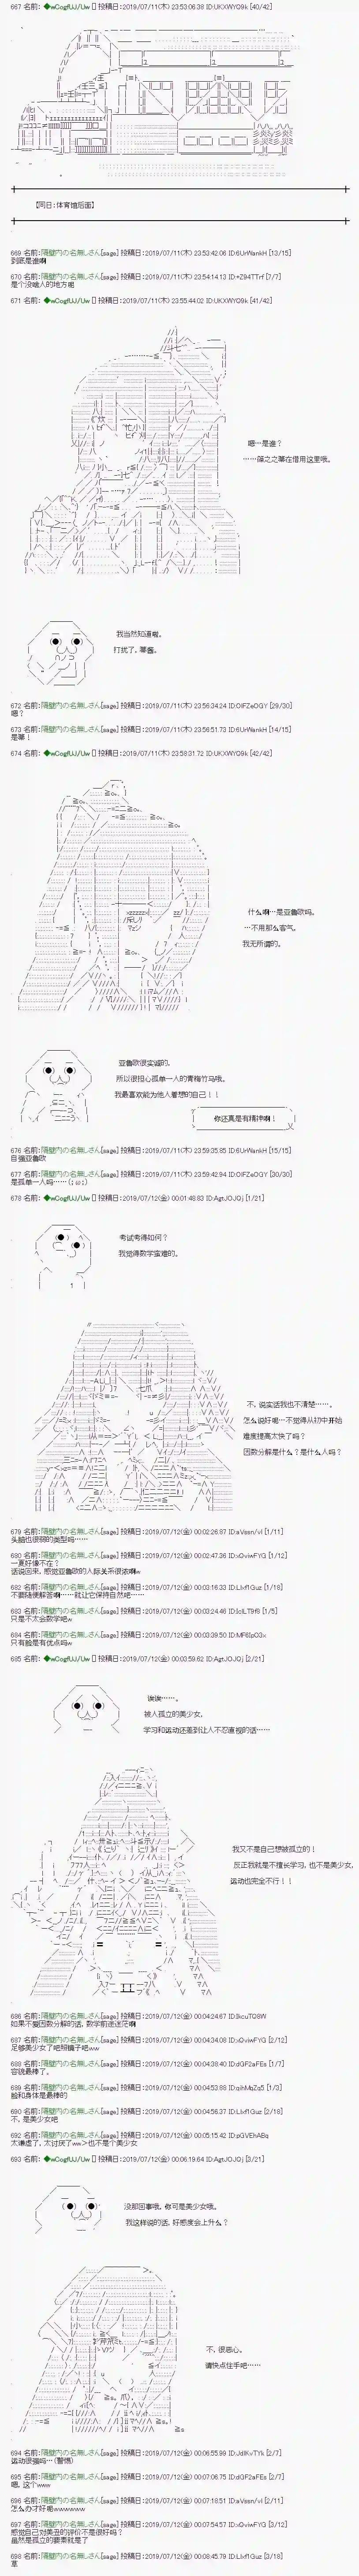 667 名前：◆wCogfUJ/Uw [] 投稿日：2019/07/11(木) 23:53:06.38 ID:UKXWYQ9k [40/42]
【同日：体育馆后面】
669 名前：隔壁内の名無しさん[sage] 投稿日：2019/07/11(木) 23:53:42.06 ID:6UrWankH [13/15]
到底是谁啊
670 名前：隔壁内の名無しさん[sage] 投稿日：2019/07/11(木) 23:54:14.13 ID:+Z94TTrf [7/7]
是个没啥人的地方呢
671 名前：◆wCogfUJ/Uw [] 投稿日：2019/07/11(木) 23:55:44.02 ID:UKXWYQ9k [41/42]
嗯…是谁？
……筱之之箒在借用这里哦。
我当然知道啦。
打扰了，箒酱。
672 名前：隔壁内の名無しさん[sage] 投稿日：2019/07/11(木) 23:56:34.24 ID:OIFZeOGY [29/30]
嗯？
673 名前：隔壁内の名無しさん[sage] 投稿日：2019/07/11(木) 23:56:51.73 ID:6UrWankH [14/15]
是箒！
674 名前：◆wCogfUJ/Uw [] 投稿日：2019/07/11(木) 23:58:31.72 ID:UKXWYQ9k [42/42]
什么啊…是亚鲁欧吗。
…不用那么客气。
我无所谓的。
亚鲁欧很实诚的。
所以很担心孤单一人的青梅竹马哦。
我最喜欢能为他人着想的自己！！
你还真是有精神啊！！
676 名前：隔壁内の名無しさん[sage] 投稿日：2019/07/11(木) 23:59:35.85 ID:6UrWankH [15/15]
自强亚鲁欧
677 名前：隔壁内の名無しさん[sage] 投稿日：2019/07/11(木) 23:59:42.94 ID:OIFZeOGY [30/30]
是孤单一人吗……(；ω；)
678 名前：◆wCogfUJ/Uw [] 投稿日：2019/07/12(金) 00:01:48.83 ID:AgtJOJQj [1/21]
考试考得如何？
我觉得数学蛮难的。
不，说实话我也不清楚……。
怎么说好呢…不觉得从初中开始
难度提高太快了吗？
因数分解是什么？是什么人吗？
679 名前：隔壁内の名無しさん[sage] 投稿日：2019/07/12(金) 00:02:26.87 ID:aVssn/vI [1/11]
头脑也很弱的类型吗……
680 名前：隔壁内の名無しさん[sage] 投稿日：2019/07/12(金) 00:02:47.36 ID:xQviwFYG [1/12]
一夏好像不在？
话说回来，感觉亚鲁欧的人际关系很浓啊w
682 名前：隔壁内の名無しさん[sage] 投稿日：2019/07/12(金) 00:03:16.33 ID:LIxf1Guz [1/18]
不要随便解答啊……就让它保持自然吧……
683 名前：隔壁内の名無しさん[sage] 投稿日：2019/07/12(金) 00:03:24.46 ID:IcILT9f9 [1/5]
只是不太会数学吧w
684 名前：隔壁内の名無しさん[sage] 投稿日：2019/07/12(金) 00:03:39.50 ID:MF6IpO3x
只有脸是有优点吗w
685 名前：◆wCogfUJ/Uw [] 投稿日：2019/07/12(金) 00:03:59.62 ID:AgtJOJQj [2/21]
诶诶……。
被人孤立的美少女，
学习和运动还差到让人不忍直视的话……
我又不是自己想被孤立的！
反正我就是不擅长学习，也不是美少女，
运动也完全不行！！
686 名前：隔壁内の名無しさん[sage] 投稿日：2019/07/12(金) 00:04:24.67 ID:9icuTQ8W
如果不会因数分解的话，数学前途迷茫啊
687 名前：隔壁内の名無しさん[sage] 投稿日：2019/07/12(金) 00:04:34.08 ID:xQviwFYG [2/12]
足够美少女了吧照镜子吧ww
688 名前：隔壁内の名無しさん[sage] 投稿日：2019/07/12(金) 00:04:38.40 ID:dGF2aFEs [1/7]
容貌最棒了。
689 名前：隔壁内の名無しさん[sage] 投稿日：2019/07/12(金) 00:04:53.88 ID:qihMqZa5 [1/3]
脸和身体是最棒的
690 名前：隔壁内の名無しさん[sage] 投稿日：2019/07/12(金) 00:04:56.37 ID:LIxf1Guz [2/18]
不，是美少女吧
692 名前：隔壁内の名無しさん[sage] 投稿日：2019/07/12(金) 00:05:15.42 ID:pGVEhABq
太谦虚了，太讨厌了ww＞也不是个美少女
693 名前：◆wCogfUJ/Uw [] 投稿日：2019/07/12(金) 00:06:19.64 ID:AgtJOJQj [3/21]
没那回事哦，你可是美少女哦。
我这样说的话，好感度会上升么？
不，很恶心。
请快点住手吧……
694 名前：隔壁内の名無しさん[sage] 投稿日：2019/07/12(金) 00:06:55.99 ID:JdIKvTYk [2/7]
运动很强吗…(警惕)
695 名前：隔壁内の名無しさん[sage] 投稿日：2019/07/12(金) 00:07:06.75 ID:dGF2aFEs [2/7]
嗯，这个ww
696 名前：隔壁内の名無しさん[sage] 投稿日：2019/07/12(金) 00:07:18.51 ID:aVssn/vI [2/11]
怎么办才好呢wwwwwww
697 名前：隔壁内の名無しさん[sage] 投稿日：2019/07/12(金) 00:07:54.57 ID:xQviwFYG [3/12]
感觉自己对美丑的评价不是很好吗？
虽然是孤立的要素就是了
698 名前：隔壁内の名無しさん[sage] 投稿日：2019/07/12(金) 00:08:45.79 ID:LIxf1Guz [3/18]
草